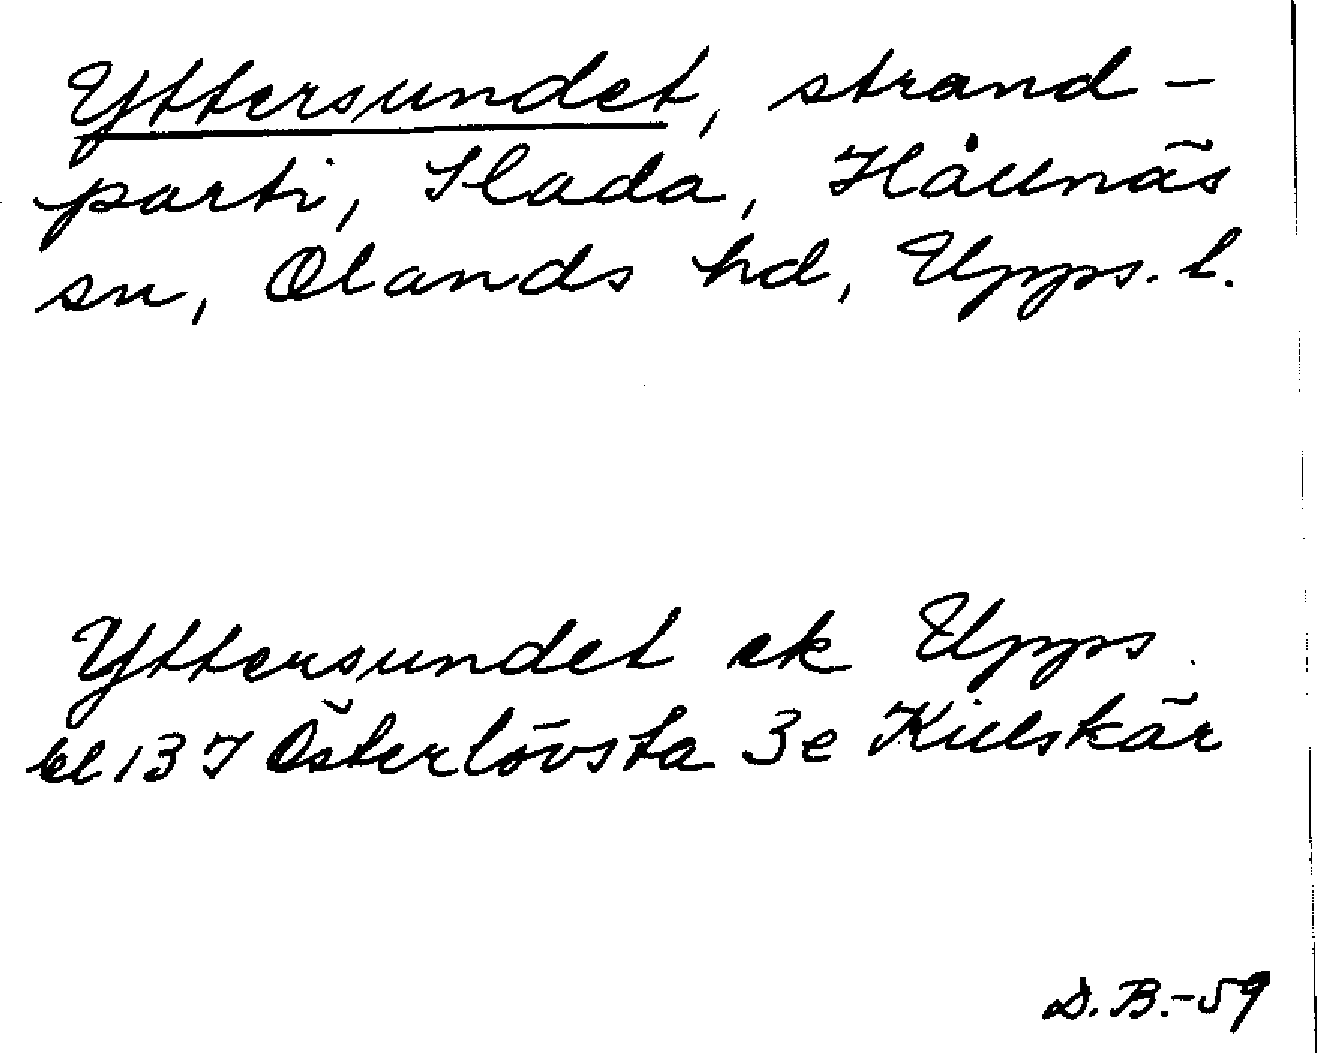 Yttersundet, strand-
parti, Slada, Hållnäs
sn, Olands hd, Upps. l.
Yttersundet ek Upps
bl 137 Österlövsta 3e Killskär
D.B.-59